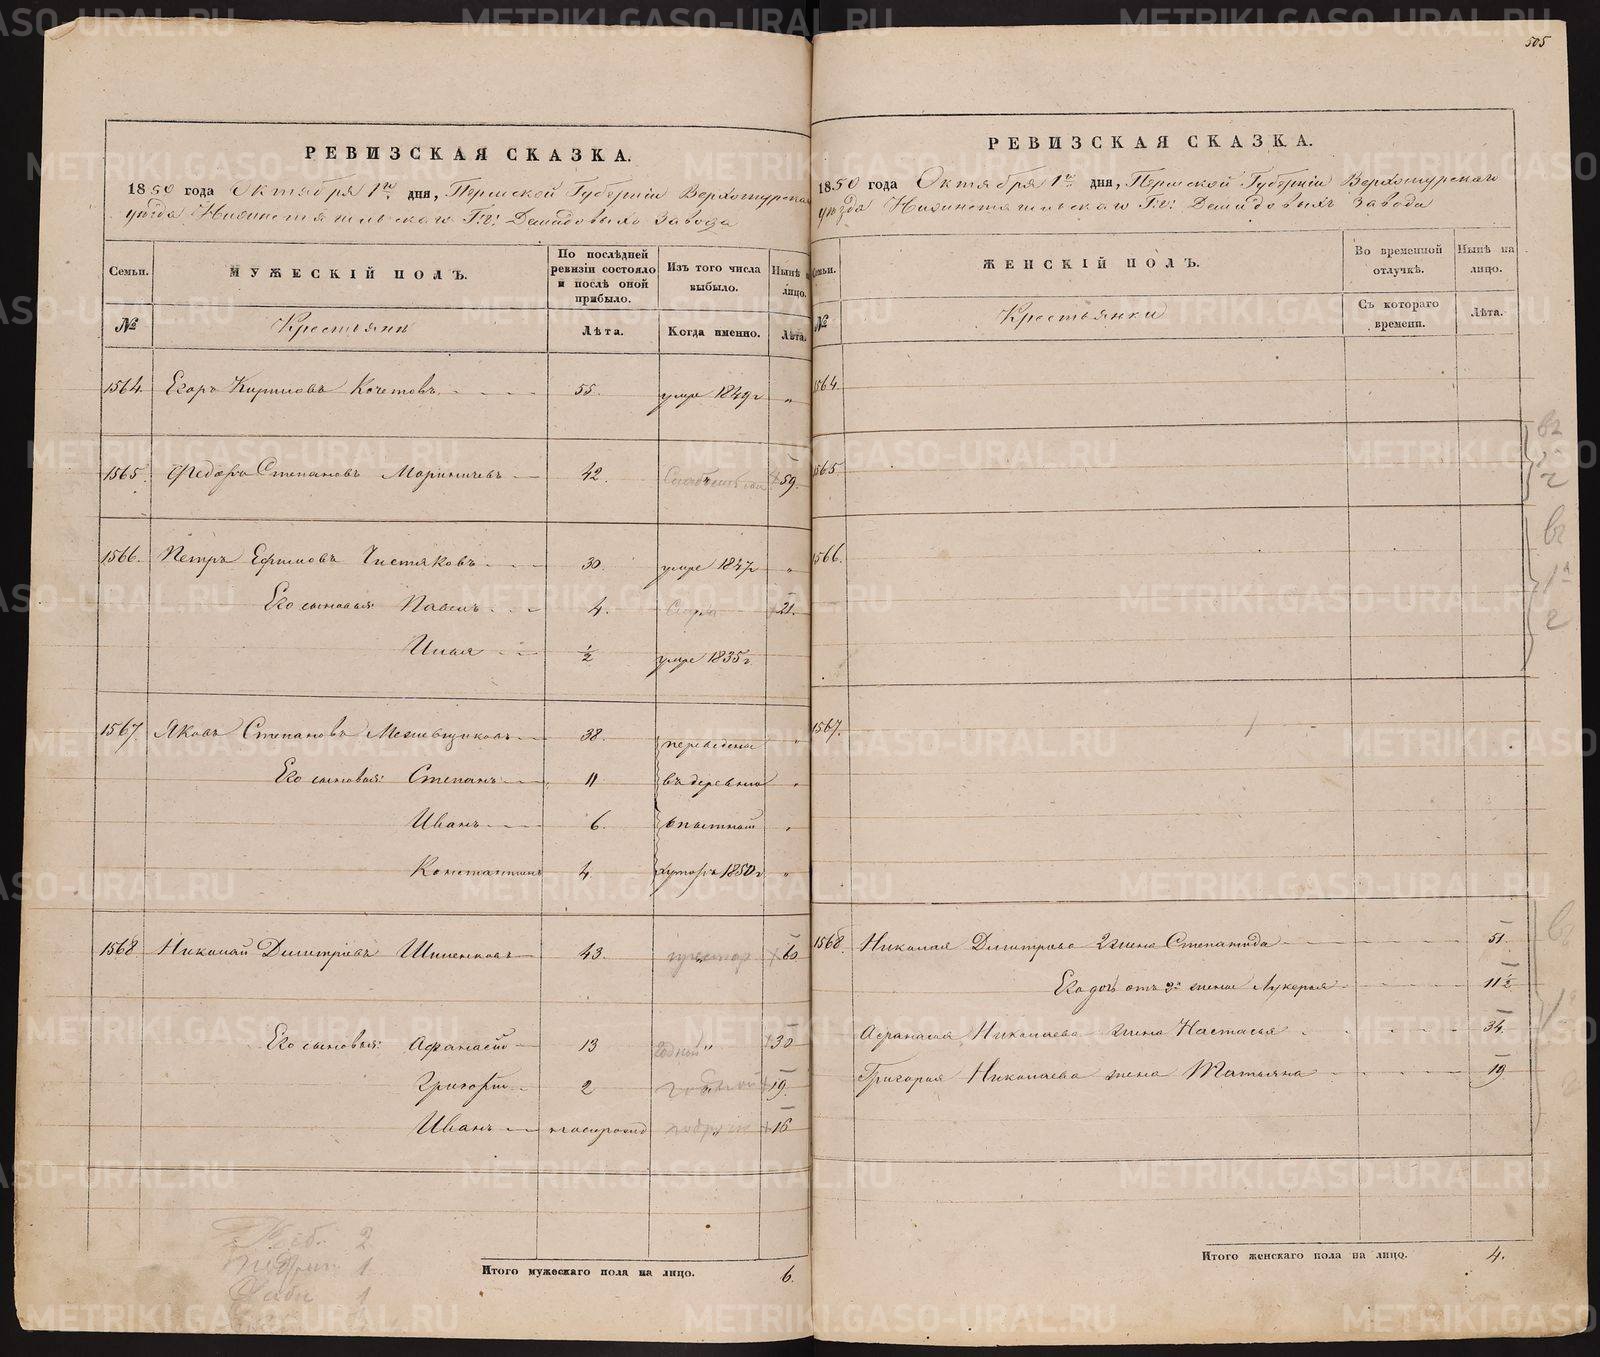 505
РЕВИЗСКАЯ СКАЗКА.
1850 года Октября 1го дня, Пермской Губерніи Верхотурскаго
уѣзда Нижнетагильскаго Г.г. Демидовыхъ Завода
Семьи. МУЖЕСКІЙ ПОЛЪ. По послѣдней ревизіи состояло и послѣ оной прибыло. Изъ того числа выбыло. Нынѣ на лицо.
№ Крестьяне Лѣта. Когда именно. Лѣта.
1564 Егоръ Кочетовъ 55. умре 1849г "
1565. Федоръ Степановъ 42. 59.
1566. Петръ Ефимовъ Чистяковъ 30. умре 1847г "
Его сыновья: Павелъ 4. 21.
Илья ½ умре 1835г.
1567. Яковъ Степановъ 38. переведены "
Его сыновья: Степанъ 11 въ деревню "
Иванъ 6. "
Константинъ 4. хуторъ 1850г "
1568 Николай Димитріевъ 43. " 60
Его сыновья: Афанасій 13 годный " 30
Григорій 2 годный " 19.
Иванъ " 16
2
1
1
Итого мужескаго пола на лицо. 6.
РЕВИЗСКАЯ СКАЗКА.
1850 года Октября 1го дня, Пермской Губерніи Верхотурскаго
уѣзда Нижнетагильскаго Г.г. Демидовыхъ Завода
Семьи. ЖЕНСКІЙ ПОЛЪ. Во временной отлучкѣ. Нынѣ на лицо.
№ Крестьянки Съ котораго времени. Лѣта.
1564.
1565.
1566.
1567.
1568. Николая Димитріева 2 жена Степанида 51.
Его дочь отъ 2й жены Лукерья 11½
Афанасья Николаева жена Настасья 34.
Григорья Николаева жена Татьяна 19
Итого женскаго пола на лицо. 4.
METRIKI.GASO-URAL.RU